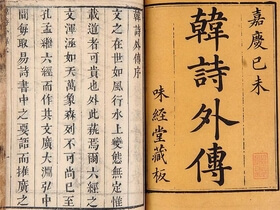 嘉慶己未
韓詩外傳
味經堂藏板
韓詩外傳序
文之在世如風行水上變態無定惟
載道者可貴也外此藉焉爾六經之
文渾涵如天萬象森列不可尚已至
孔孟繼六經而作其文廣大淵弘中
間每取易詩書中之要語而推廣之